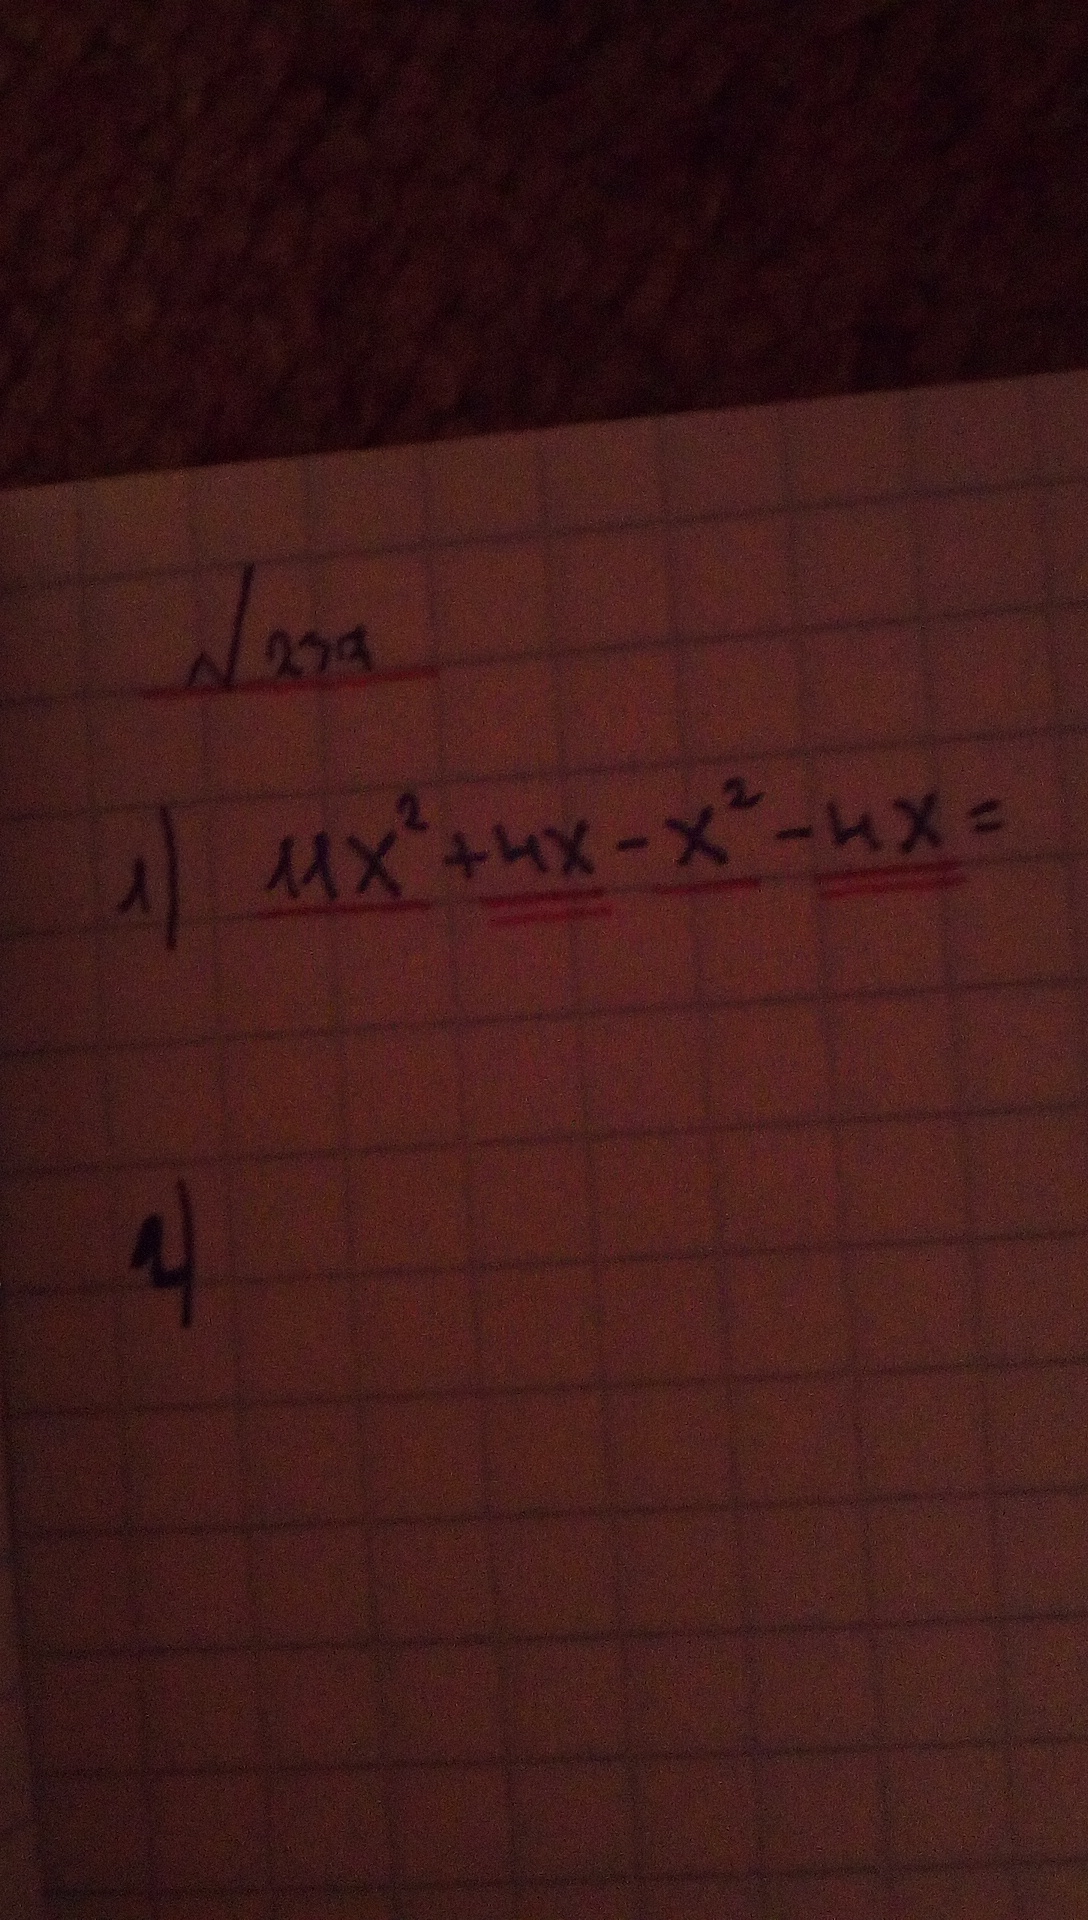 √239
1) 11x² + 4x - x² - 4x =
2)